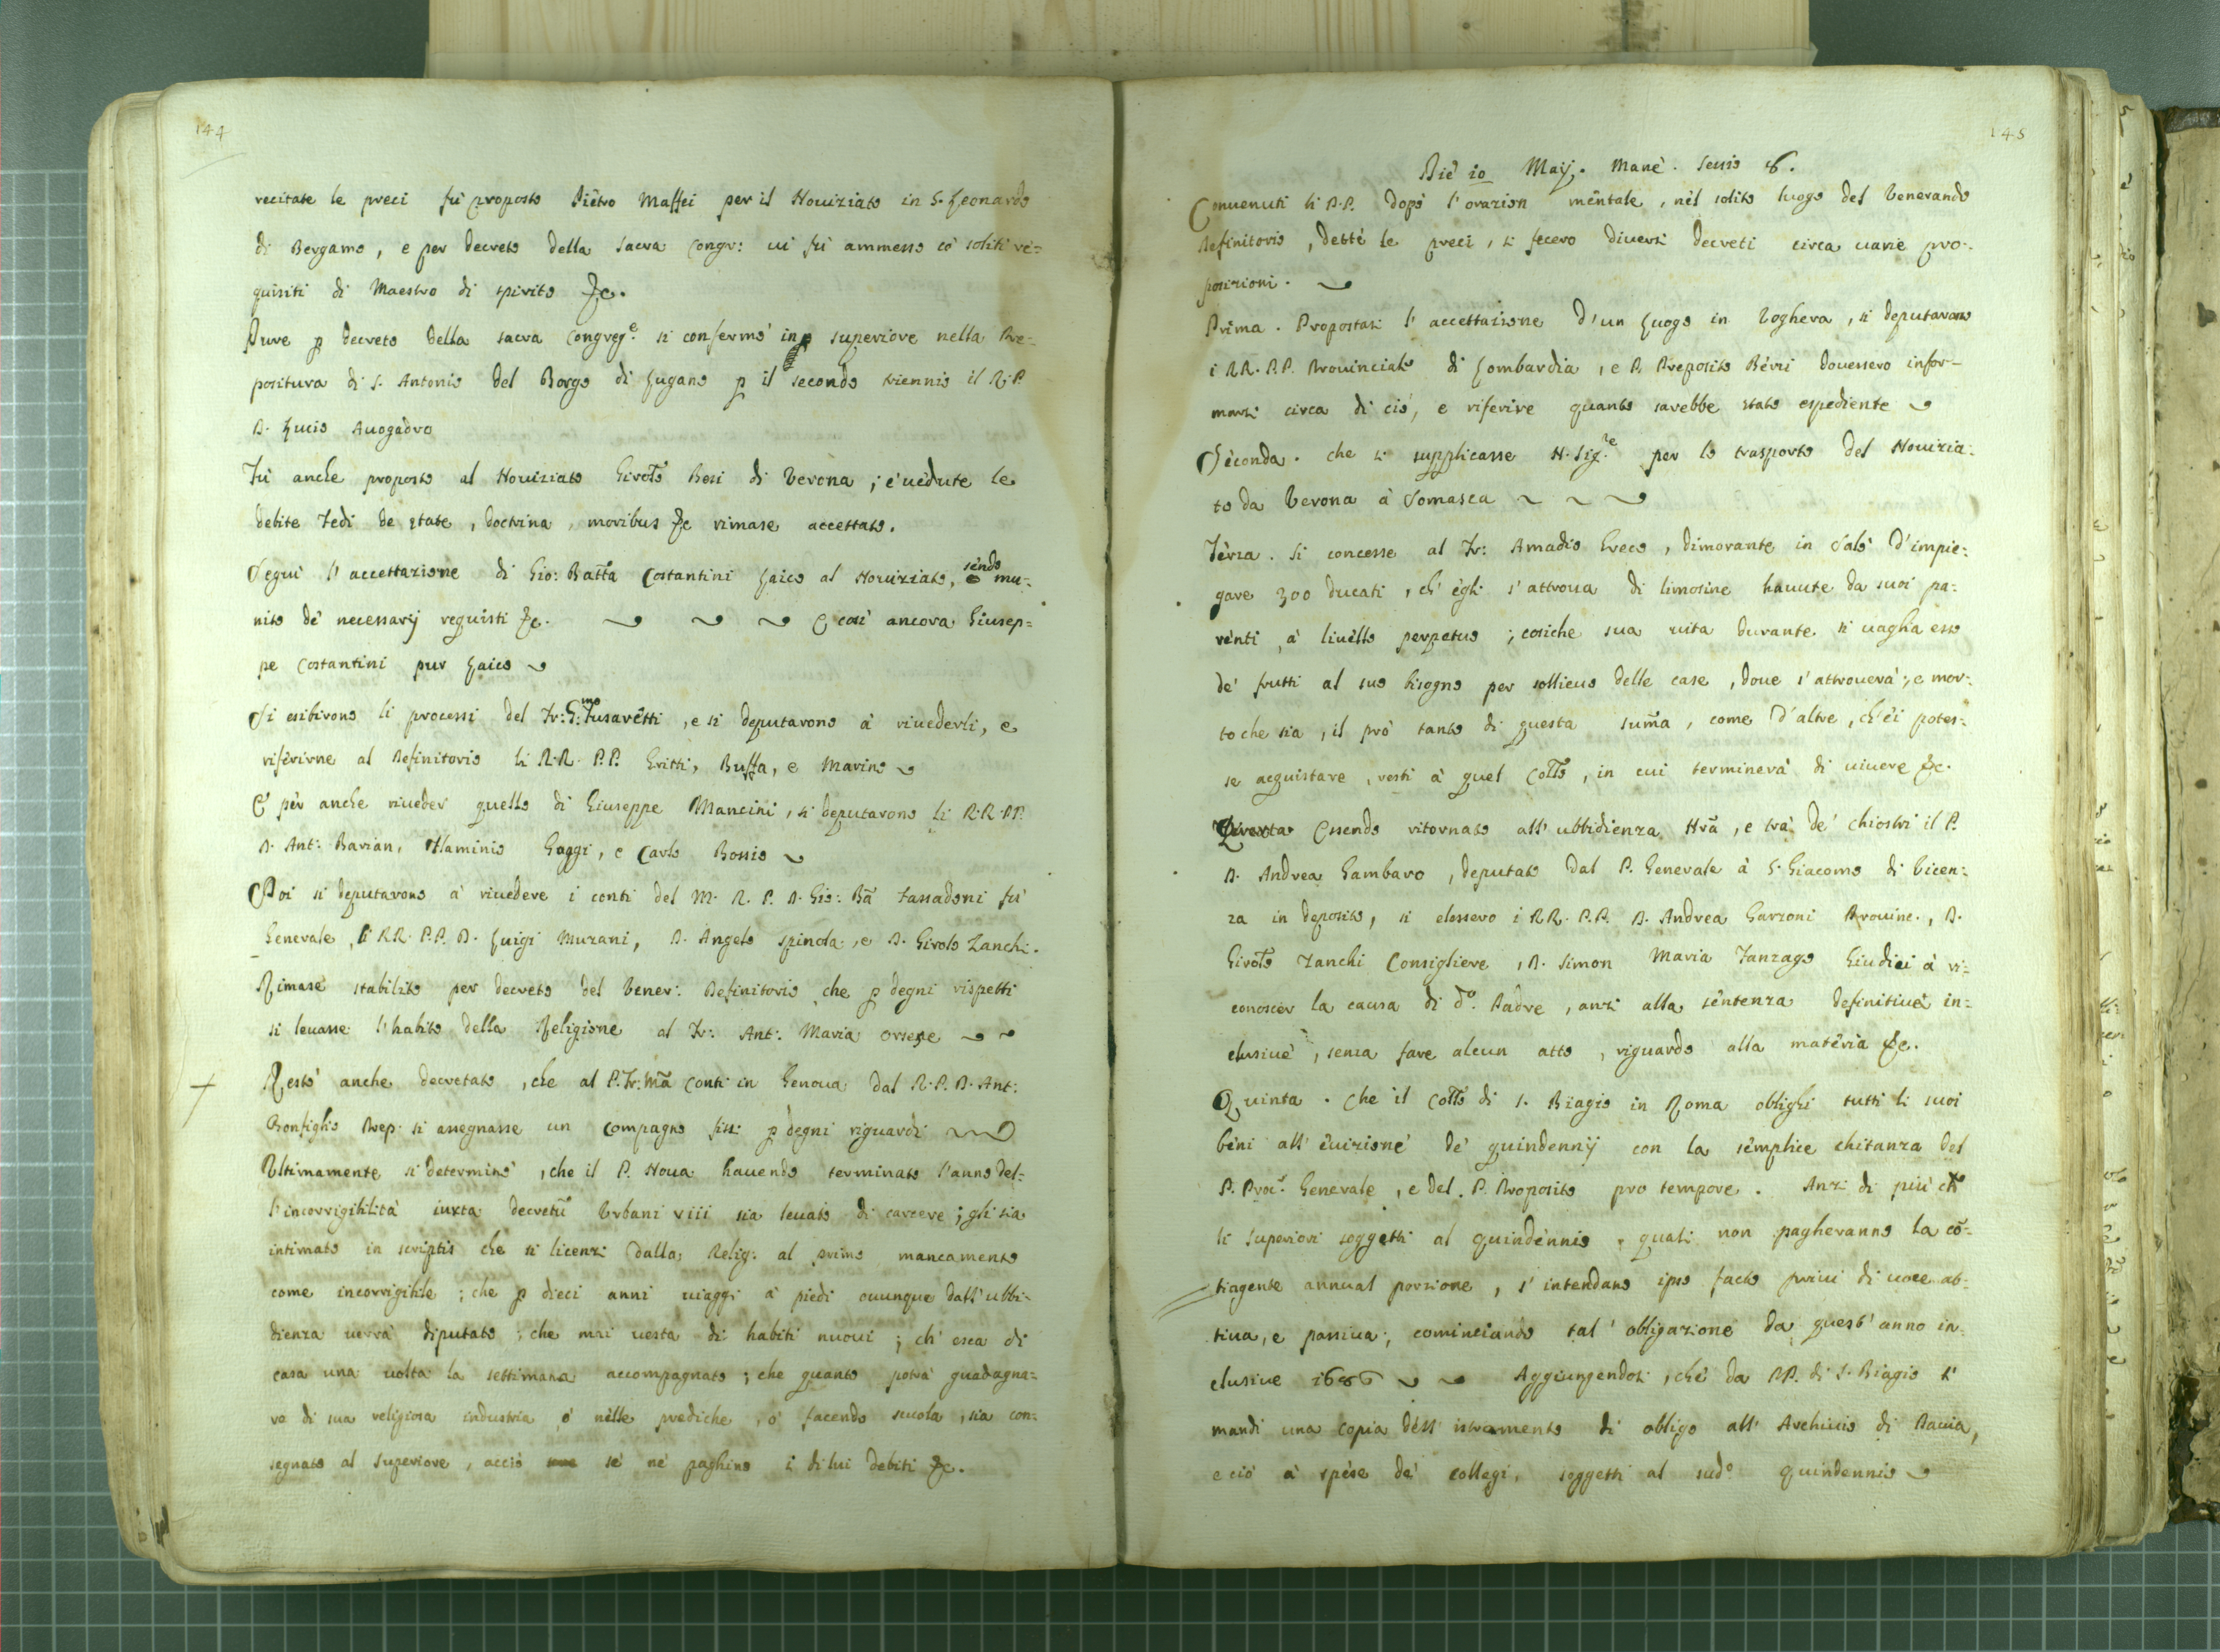 144
recitate le preci fù proposto Piêtro Maffei per il Nouiziato in S. Leonardo
di Bergamo, e per decreto della sacra Congr: ui fù ammesso co' soliti re=
quisiti di Maestro di spirito &c.
Pure p decreto della sacra Congreg.e si confermò in superiore nella Pre=
positura di S. Antonio del Borgo di Lugano p il secondo triennio il R. P.
D. Lucio Auogadro
Fù anche proposto al Nouiziato Girol.o Besi di Verona; e uedute le
debite Fedi de etate, doctrina, moribus &c rimase accettato.
Seguì l'accettazione di Gio: Batta Costantini Laico al Nouiziato, sendo mu=
nito de' necessarij requisti &c. E così ancora Giusep=
pe Costantini pur Laico
Si esibirono li processi del Fr: G:mo Fusarêtti, e si deputarono à riuederli, e
riferirne al Definitorio li R.R. P.P. Gritti, Buffa, e Marino
E pèr anche riueder quello di Giuseppe Mancini, si deputarono li R.R. PP.
D. Ant: Pavian, Flaminio Gaggi, e Carlo Rossio
Poi si deputarono à riuedere i conti del M. R. P. D. Gio: Ba Fassadoni fù
Generale, li RR. P.P. D. Luigi Murani, D. Angelo spinola, e D. Girolo Zanchi.
Rimase stabilito per decreto del Vener: Definitorio che p degni rispetti
si leuasse l'habito della Religione al Fr: Ant: Maria Orsene
Restò anche decretato, che al P. Fr: Ma Conti in Genoua dal R. P. D. Ant:
Bonfiglio Prep. si assegnasse un Compagno fisso p degni riguardi
Vltimamente si determinò, che il P. Noua hauendo terminato l'anno del=
l'incorrigibilità iuxta decretũ Vrbani viii sia leuato di carcere; gli sia
intimato in scriptis che si licenzi dalla Relig: al primo mancamento
come incorrigibile; che p dieci anni uiaggi à piedi ouunque dall'ubbi=
dienza uerrà diputato; che mai uesta di habiti nuoui; ch' esca di
casa una uolta la settimana accompagnato; che quanto potrà guadagna=
re di sua religiosa industria ò nèlle prediche, ò facendo scuola, sia con=
segnato al Superiore, acciò se' ne' paghino i di lui debiti &c.
145
Diè 10 Maij. Manè. Sessio 8.
Conuenuti li P.P. dopò l'orazion mêntale, nèl solito luogo del Venerando
Definitorio, dettè le preci, si fecero diuersi decreti circa uarie pro=
posizioni.
Prima. Propostasi l'accettazione d'un Luogo in Voghera, si deputarono
i RR. P.P. Prouinciale di Lombardia, e P. Preposito Bèrri douessero infor=
marsi circa di ciò, e riferire quanto sarebbe stato espediente
Sèconda. che si supplicasse N. Sig.re per lo trasporto del Nouizia=
to da Verona à Somasca
Tèrza. Si concesse al Fr: Amadio Greco, dimorante in Salò d'impie=
gare 300 ducati, ch' ègli s'attroua di limosine hauute da suoi pa=
rènti, à liuèllo perpetuo; cosiche sua uita durante si uaglia esso
de' frutti al suo bisogno per sollieuo delle case, doue s'attrouerà; e mor=
to che sia, il prò tanto di questa suma, come d'altre, ch' ei potes=
se acquistare, resti à quel Collo, in cui terminerà di uiuere &c.
Quarta Essendo ritornato all' ubbidienza Nra, e trà de' chiostri il P.
D. Andrea Gambaro, deputato dal P. Generale à S. Giacomo di Vicen=
za in deposito, si elessero i RR. P.P. D. Andrea Garzoni Prouinc., D.
Girolo Zanchi Consigliere, D. Simon Maria Fanzago Giudici à ri=
conoscer la causa di do. Padre, anzi alla sêntenza definitiuè in=
clusiuè, senza fare alcun atto, riguardo alla matèria &c.
Quinta. Che il Collo di S. Biagio in Roma oblighi tutti li suoi
bèni all' èuizionè de' quindennij con la sèmplice chitanza del
P. Procr. Generale, e del P. Proposito pro tempore. Anzi di più che
li Superiori soggetti al quindènnio, quali non pagheranno la cõ=
tiagente annual porzione, s'intendano ipso facto priui di uoce at=
tiua, e passiua; cominciando tal' obligazione da quest' anno in=
clusiue 1686 Aggiungendosi, che da PP. di S. Biagio si
mandi una copia dell' istromento di obligo all' Archiuio di Pauia,
e ciò à spèse de' collegi, soggetti al sudo. quindennio